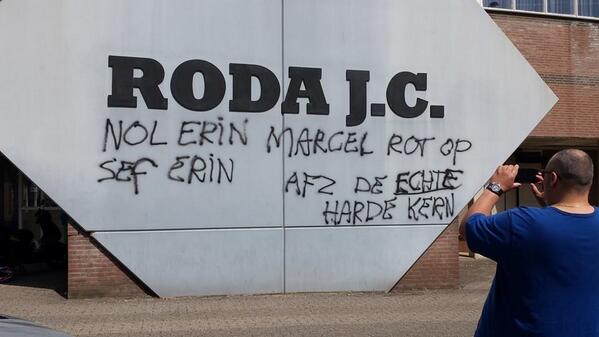 RODA J.C.
NOL ERIN MARCEL ROT OP
SEF ERIN AFZ DE ECHTE
HARDE KERN